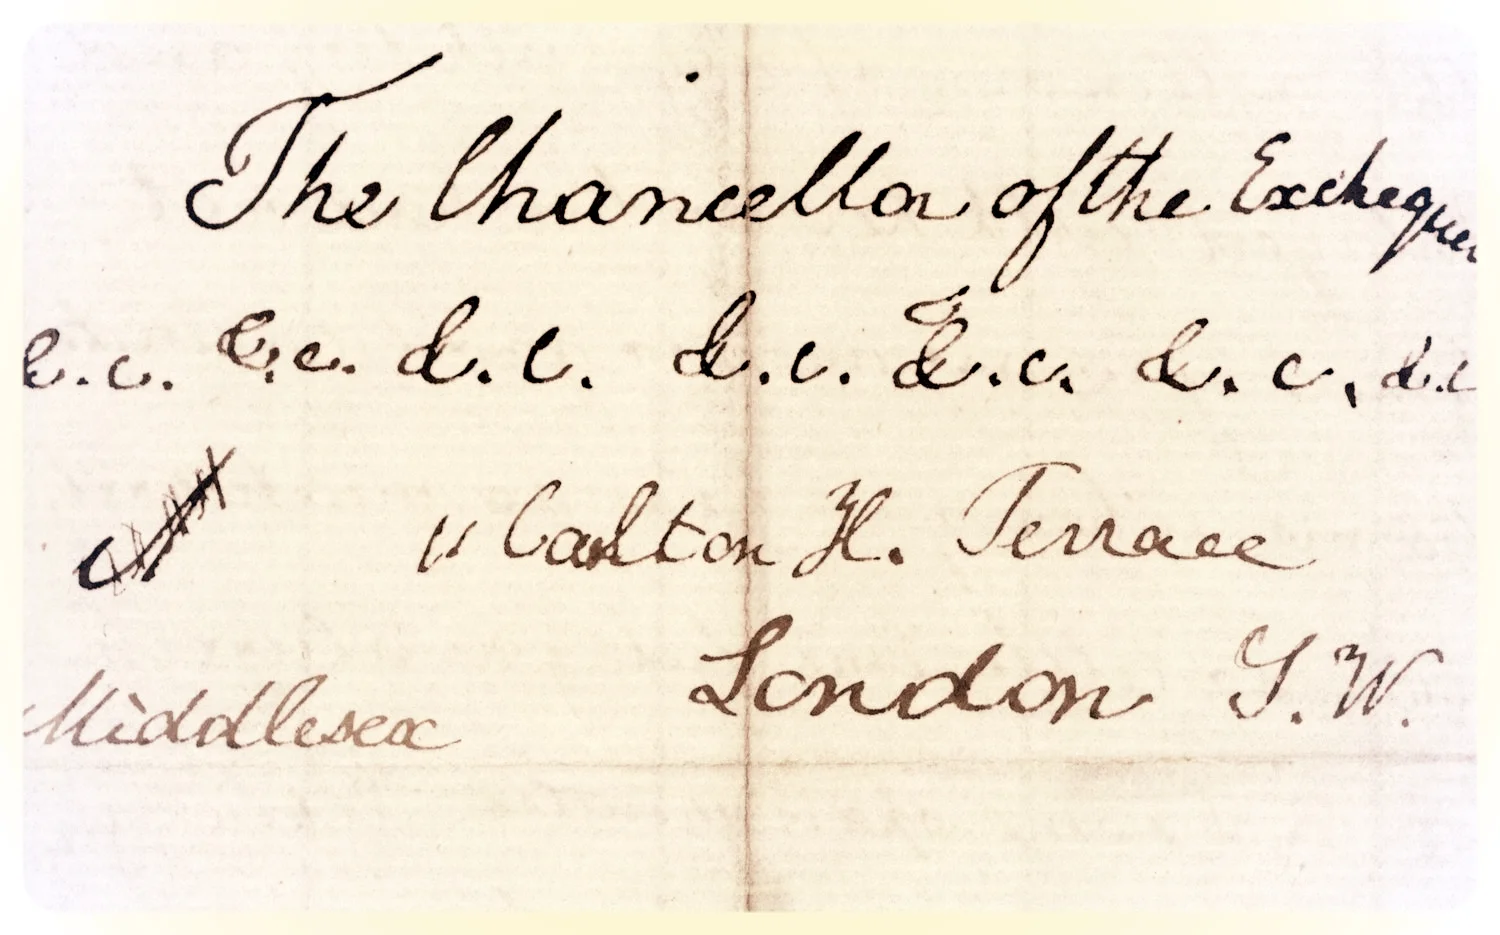 The Chancellor of the Exchequer
&.c. &.c. &.c. &.c. &.c. &.c, &.c
11 Carlton H. Terrace
London S.W.
Middlesex